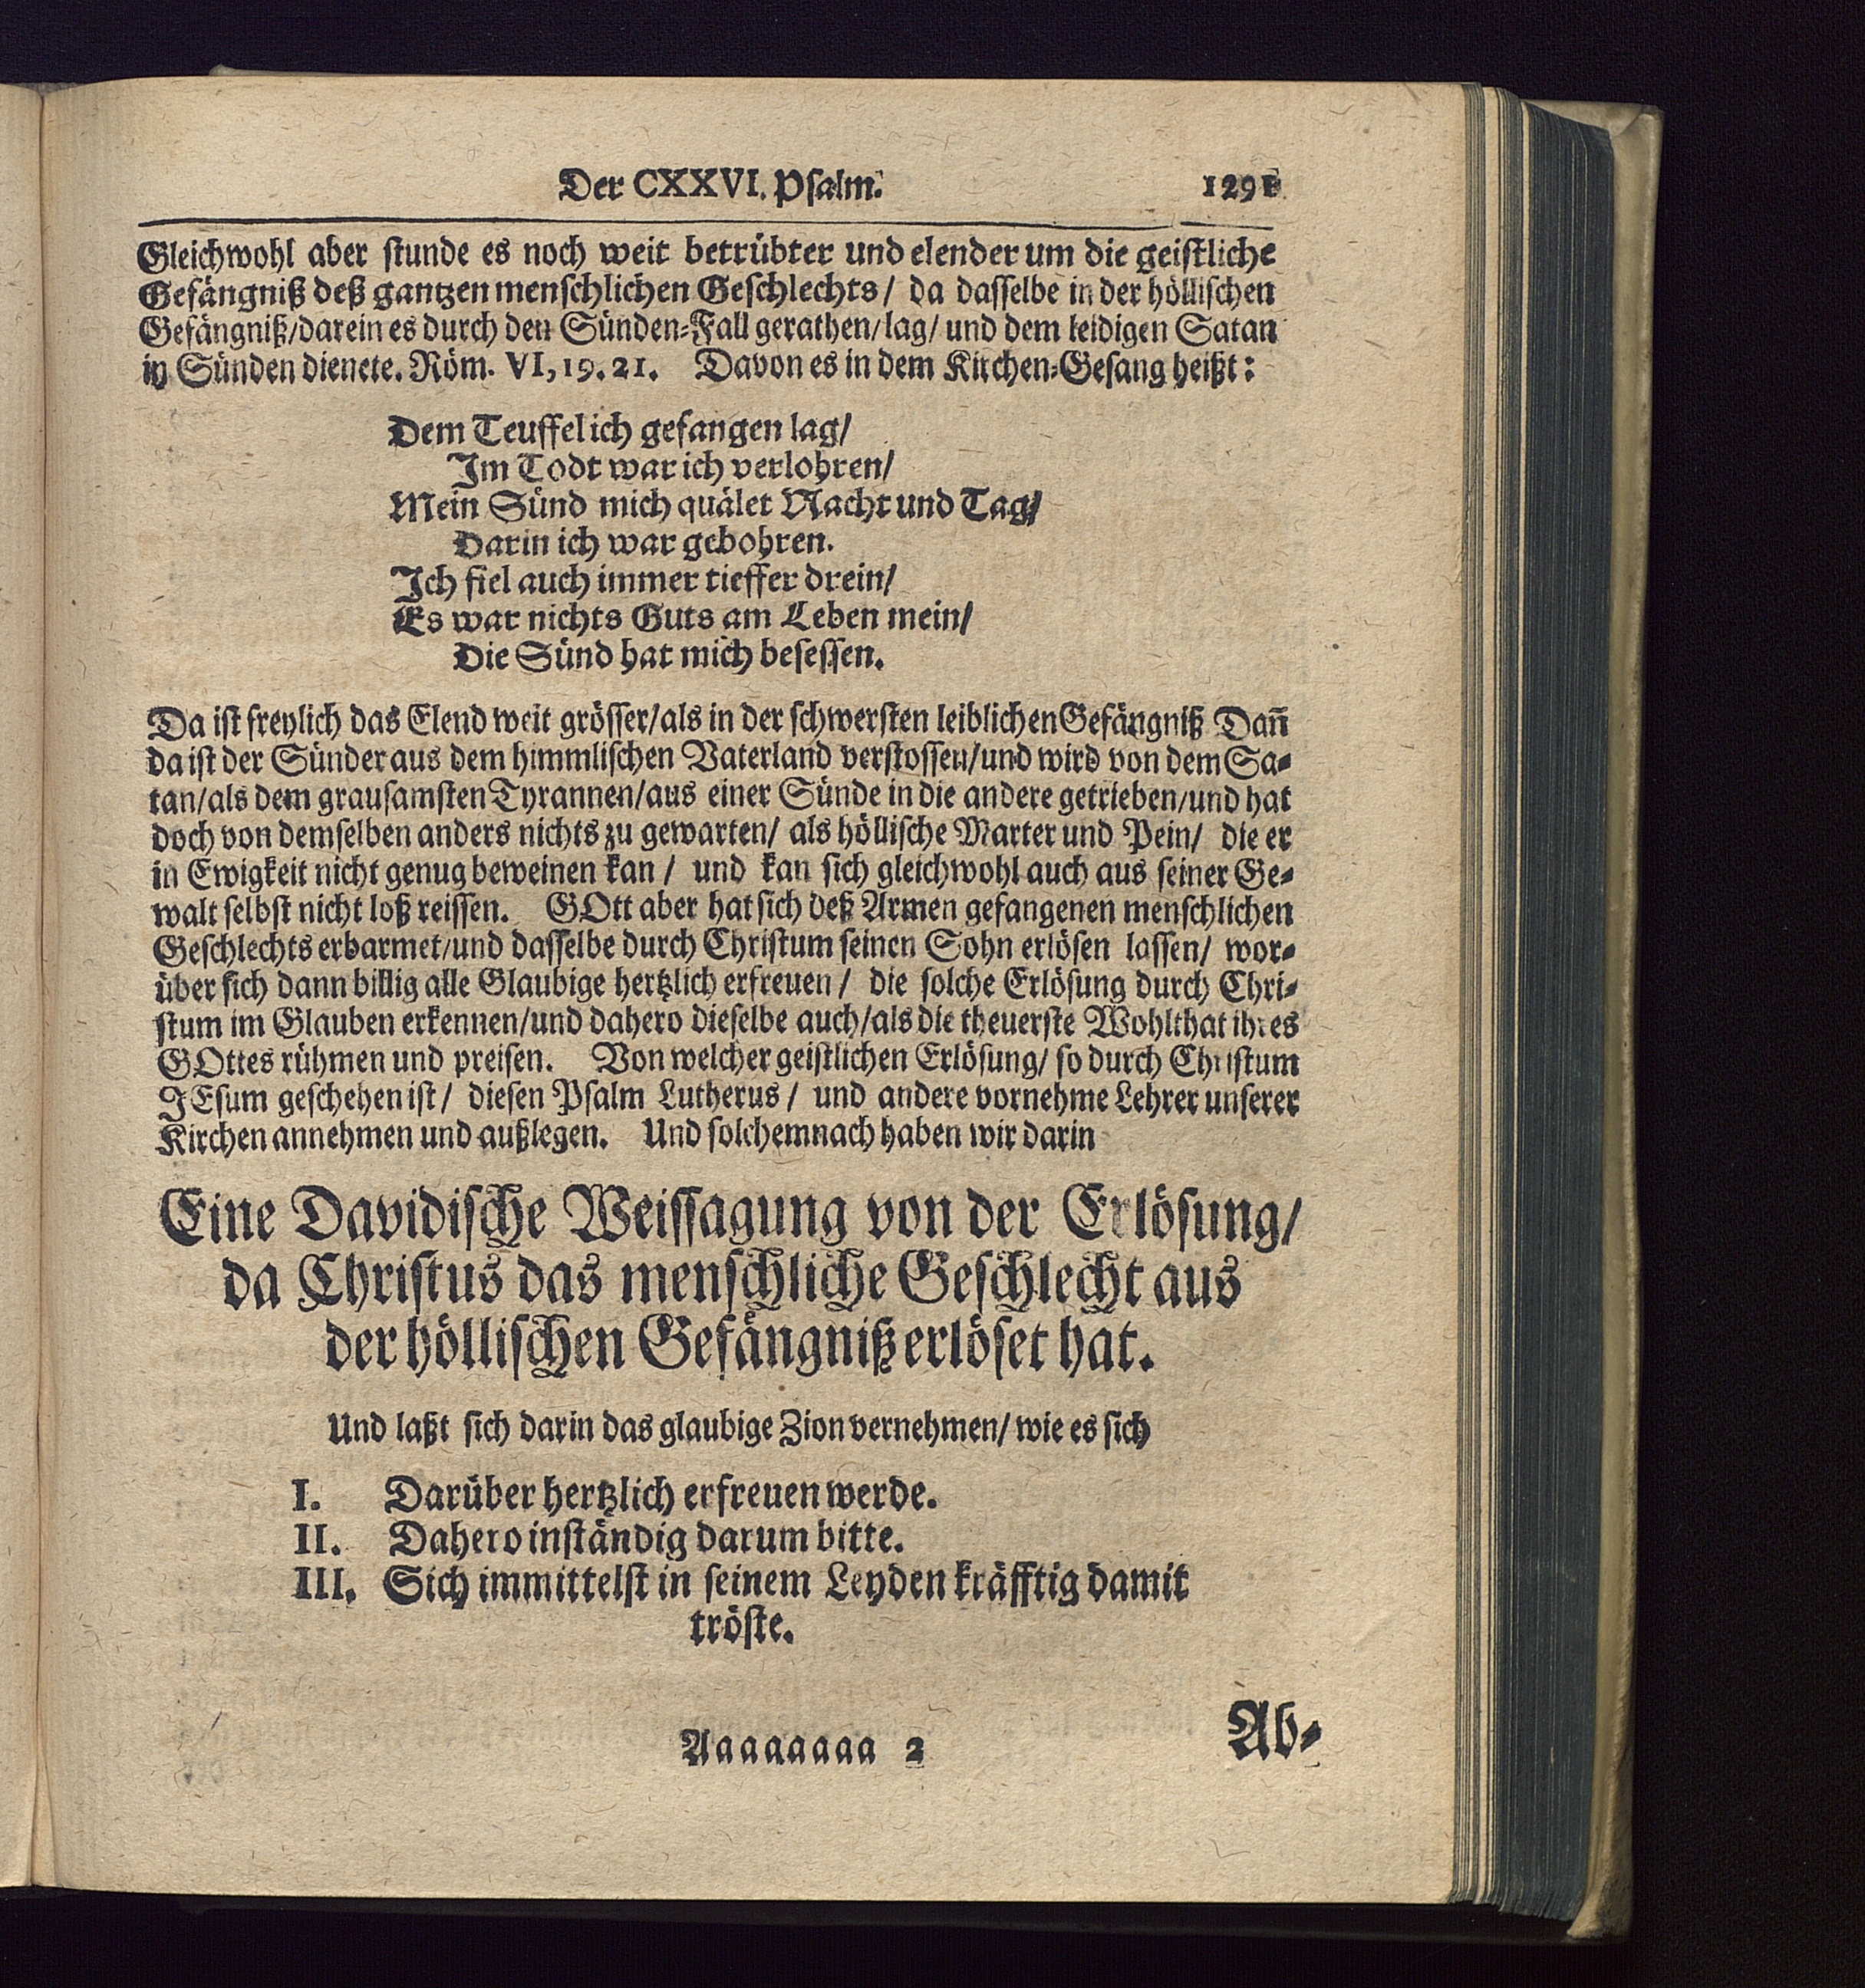 Der CXXVI. Psalm. 1291
Gleichwohl aber stunde es noch weit betrübter und elender um die geistliche
Gefängniß deß gantzen menschlichen Geschlechts/ da dasselbe in der höllischen
Gefängniß/darein es durch den Sünden-Fall gerathen/lag/ und dem leidigen Satan
in Sünden dienete. Röm. VI, 19. 21. Davon es in dem Kirchen-Gesang heißt:
Dem Teuffel ich gefangen lag/
Im Todt war ich verlohren/
Mein Sünd mich quälet Nacht und Tag/
Darin ich war gebohren.
Ich fiel auch immer tieffer drein/
Es war nichts Guts am Leben mein/
Die Sünd hat mich besessen.
Da ist freylich das Elend weit grösser/als in der schwersten leiblichen Gefängniß Dañ
da ist der Sünder aus dem himmlischen Vaterland verstossen/und wird von dem Sa-
tan/als dem grausamsten Tyrannen/aus einer Sünde in die andere getrieben/und hat
doch von demselben anders nichts zu gewarten/ als höllische Marter und Pein/ die er
in Ewigkeit nicht genug beweinen kan/ und kan sich gleichwohl auch aus seiner Ge-
walt selbst nicht loß reissen. GOtt aber hat sich deß Armen gefangenen menschlichen
Geschlechts erbarmet/und dasselbe durch Christum seinen Sohn erlösen lassen/ wor-
über sich dann billig alle Glaubige hertzlich erfreuen/ die solche Erlösung durch Chri-
stum im Glauben erkennen/und dahero dieselbe auch/als die theuerste Wohlthat ihres
GOttes rühmen und preisen. Von welcher geistlichen Erlösung/ so durch Christum
JEsum geschehen ist/ diesen Psalm Lutherus/ und andere vornehme Lehrer unserer
Kirchen annehmen und außlegen. Und solchemnach haben wir darin
Eine Davidische Weissagung von der Erlösung/
da Christus das menschliche Geschlecht aus
der höllischen Gefängniß erlöset hat.
Und laßt sich darin das glaubige Zion vernehmen/ wie es sich
I. Darüber hertzlich erfreuen werde.
II. Dahero inständig darum bitte.
III. Sich immittelst in seinem Leyden kräfftig damit
tröste.
Aaaaaaaa 2 Ab-